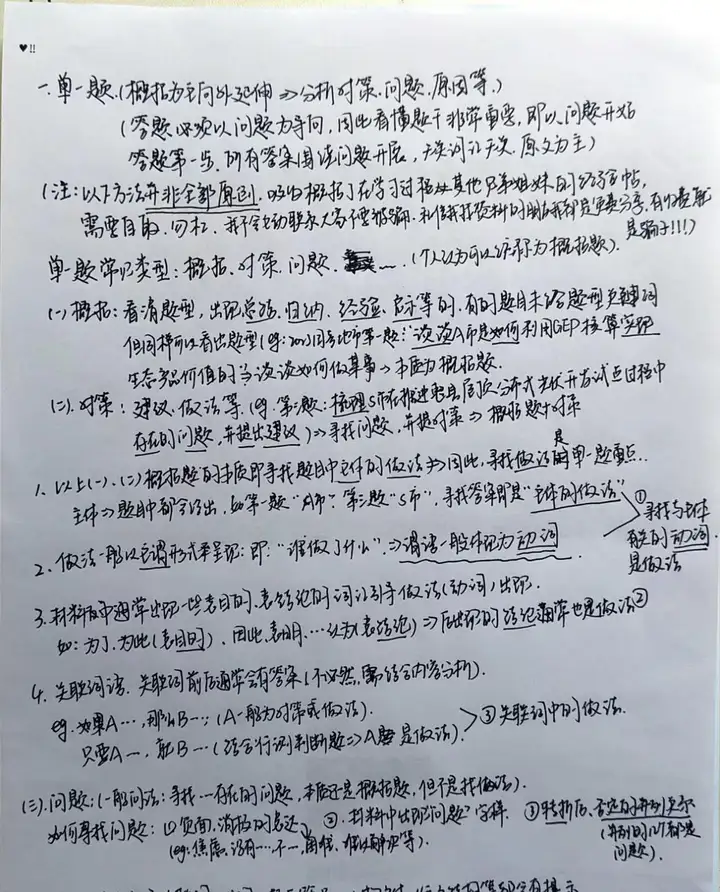 ♥!!
一.单一题.(概括为主向外延伸→分析对策.问题.原因等.)
(答题必须以问题为导向,因此看懂题干非常重要,即以问题开始
答题第一步.所有答案围绕问题开展,关键词以天头.原文为主)
(注:以下方法并非全部原创.吸收概括了在学习过程中其他兄弟姐妹的经验帖,
需要自取.勿杠.我不会主动联系大家
是骗子!!!)
单一题常见类型:概括.对策.问题. ……(个人认为可以统称为概括题).
(一)概括:看清题型,出现总结.归纳.经验.启示等的.有的题目未给题型关键词
但同样可以看出题型(eg:2021国考地市第一题:"谈谈A市是如何利用GEP核算实现
生态产品价值的"当谈谈如何做某事→本质为概括题.
(二).对策:建议.做法等.(eg.第二题:梳理S市在推进 分布式光伏开发试点过程中
存在的问题,并提出建议)→寻找问题,并提对策→概括题+对策
1.以上(一).(二)概括题的本质即寻找题目中主体的做法→因此,寻找做法是单一题重点..
主体→题目中都会给出,如第一题"A市".第二题"S市".寻找答案即是"主体的做法"
①寻找与主体有关的动词是做法
2.做法一般以主谓形式来呈现:即:"谁做了什么".→谓语一般体现为动词
3.材料中通常出现一些表目的.表结论的词以引导做法(动词)出现.
如:为了.为此(表目的).因此.表明.…认为(表结论)→后出现的结论通常也是做法②
4.关联词语.关联词前后通常会有答案(不必然,需结合内容分析).
eg.如果A…,那么B…;(A一般为对策或做法).
只要A…,就B…(结合行测判断题→A 是做法).
③关联词中的做法.
(三).问题:(一般问法:寻找…存在的问题,本质还是概括题,但不是找做法).
如何寻找问题:①负面.消极的表达 ②.材料中出现"问题"字样. ③转折后.否定的并列关系
(eg.焦虑.没有…不一. 难以解决等).
(并列的几个都是问题).